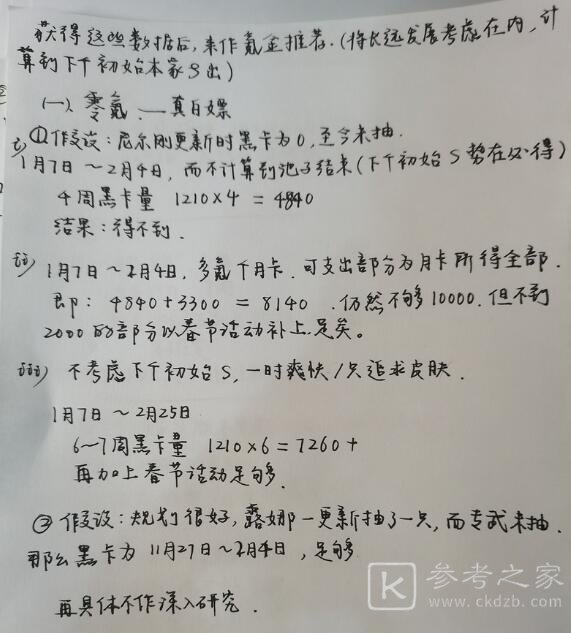 获得这些数据后,来作氪金推荐.(将长远发展考虑在内,计
算到下个初始本家S出)
(一)、零氪.——真白嫖
i) ①假设:尼尔刚更新时黑卡为0,至今未抽.
1月7日~2月4日,而不计算到池子结束(下个初始S势在必得)
4周黑卡量 1210×4=4840
结果:得不到.
ii) 1月7日~2月4日,多氪个月卡.可支出部分为月卡所得全部.
即: 4840+3300=8140.仍然不够10000.但不到
2000的部分以春节活动补上足矣。
iii) 不考虑下个初始S,一时爽快/只追求皮肤.
1月7日~2月25日
6~7周黑卡量 1210×6=7260+
再加上春节活动足够.
② 假设:规划很好,露娜一更新抽了一只,而专武未抽.
那么黑卡为11月27日~2月4日,足够.
再具体不作深入研究.
K 参考之家
www.ckdzb.com